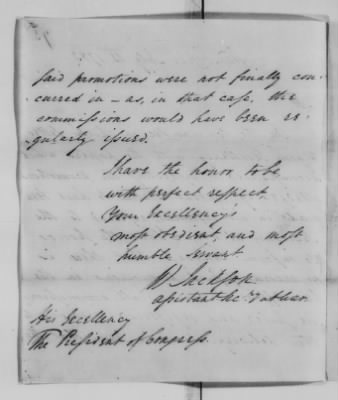 said promotions were not finally con-
curred in – as, in that case, the
commissions would have been re-
gularly issued.
I have the honor to be
with perfect respect,
Your Excellency's
most obedient, and most
humble servant
W Jackson
assistant Secretary
His Excellency
The President of Congress.